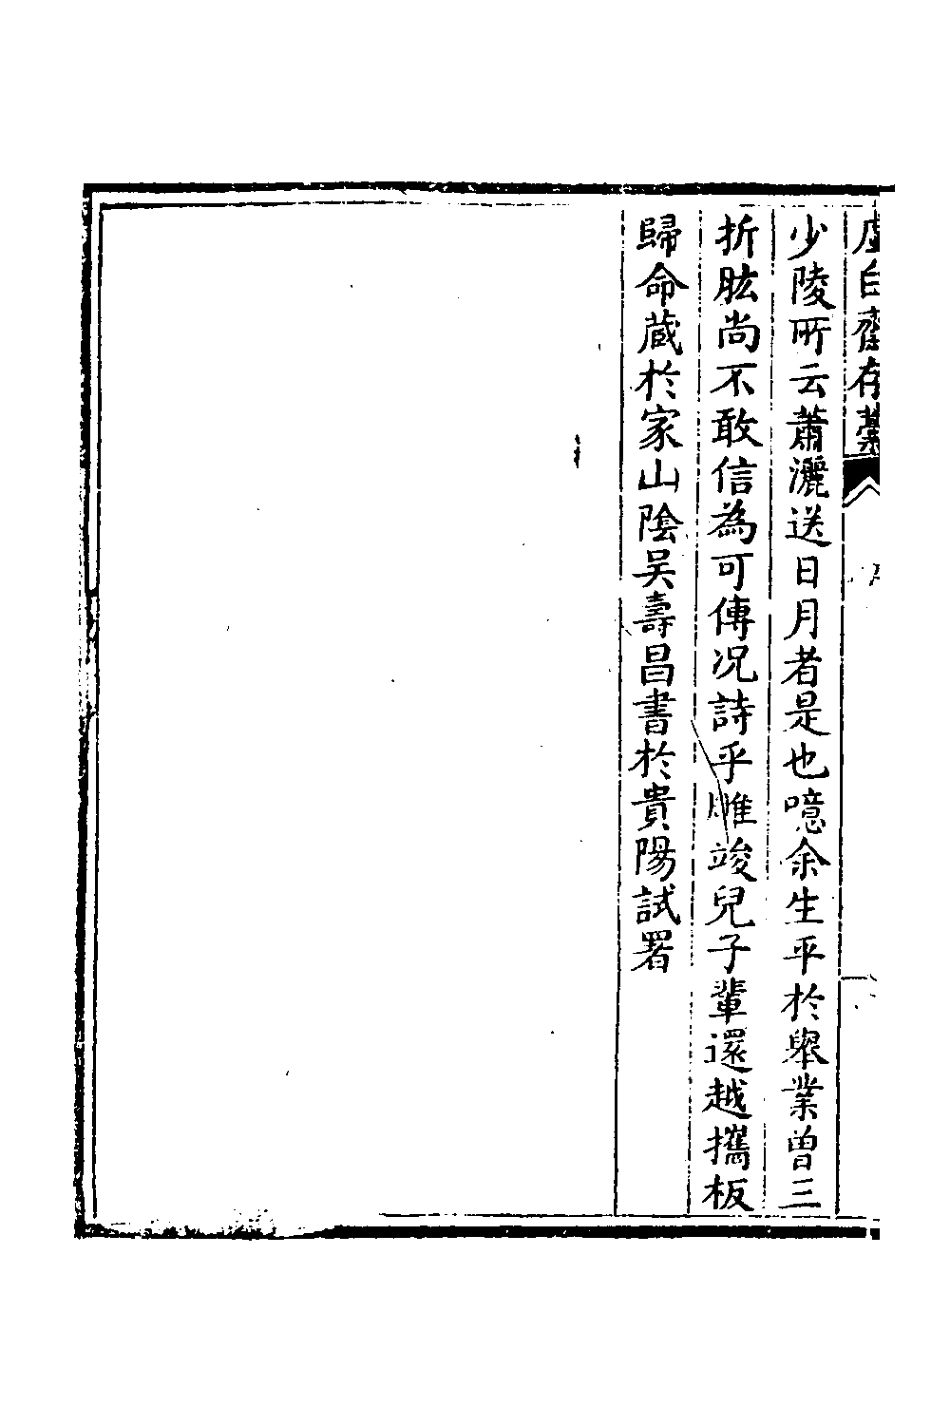 虛白齋存藁
少陵所云蕭灑送日月者是也噫余生平於舉業曾三
折肱尚不敢信為可傳况詩乎雕竣兒子輩還越攜板
歸命蔵於家山隂吴壽昌書於貴陽試署